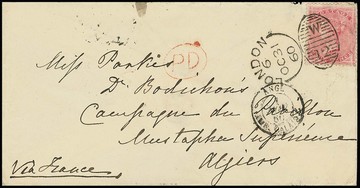 Miss Parkes
Dr. Bodichon's
Campagne du Pavillon
Mustapha Inférieure
Algiers
Via France
PD
LONDON
9
OC 31
60
W
12
ANGL.